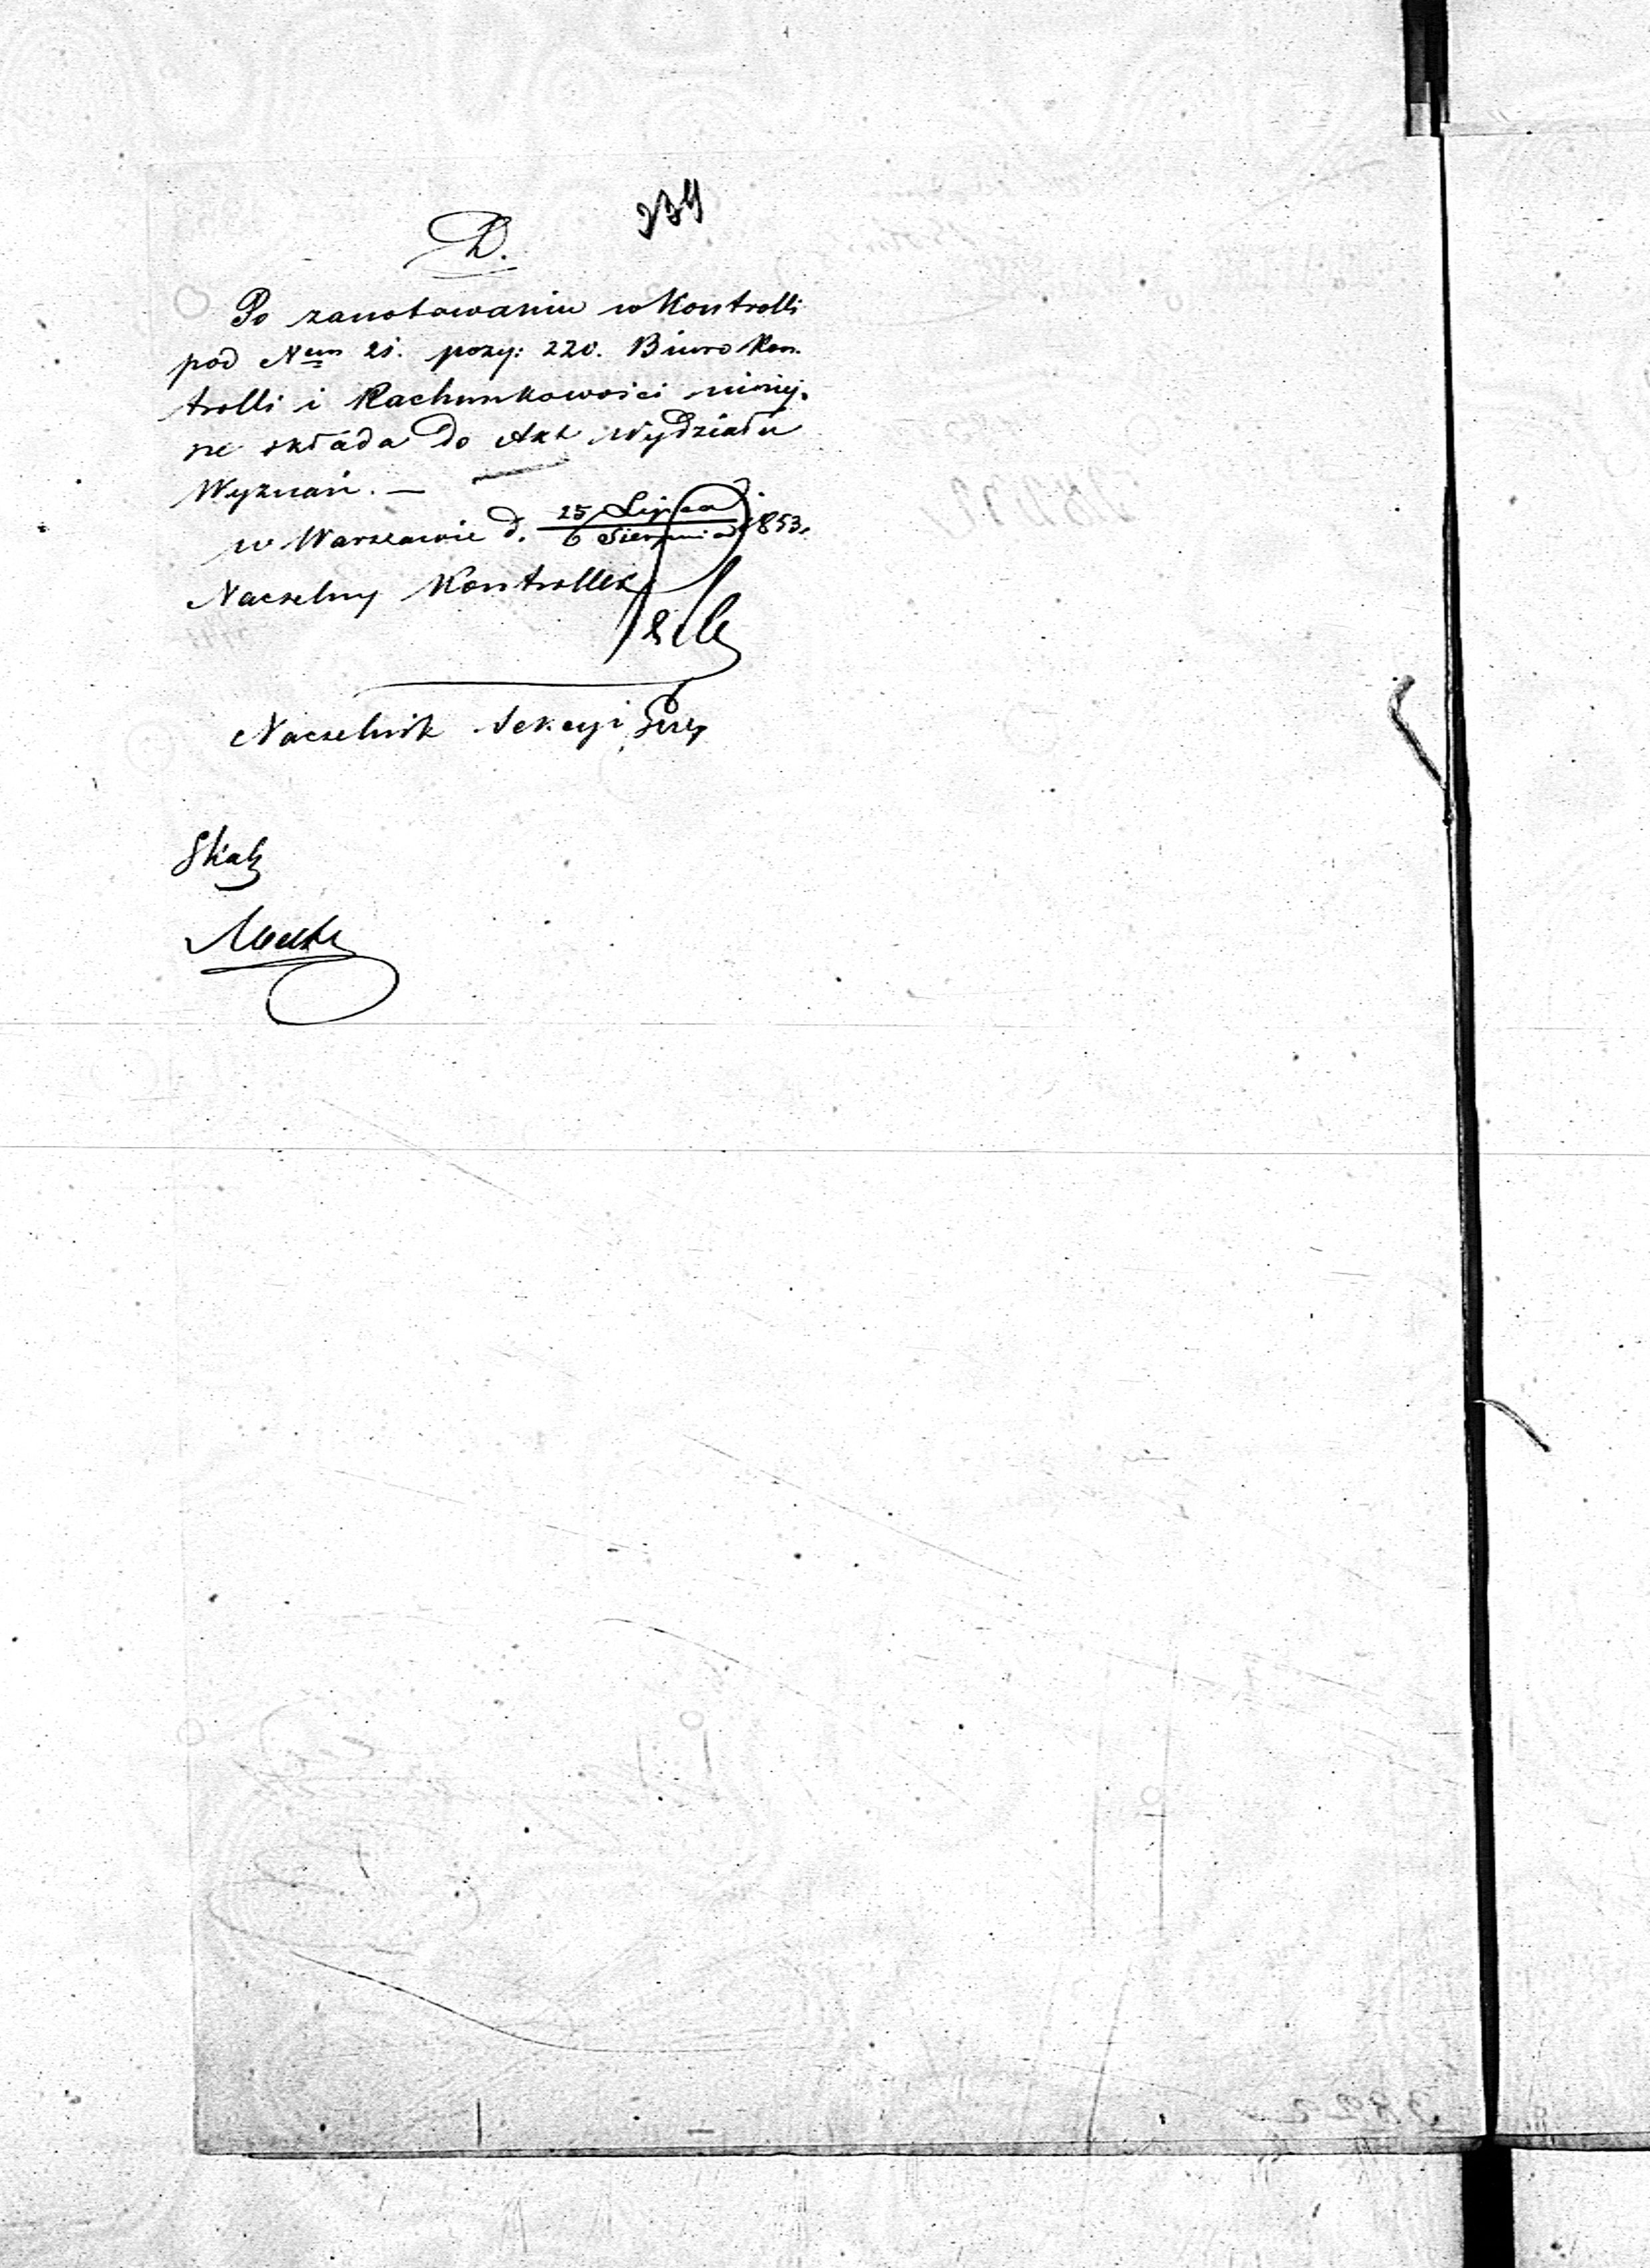 234
D.
Po zanotowaniu w Kontrolli
pod Nem 21. pozy: 220. Biuro Kon.
trolli i Rachunkowości niniej.
sze składa do Akt Wydziału
Wyznań. —
w Warszawie d. 25 Lipca / 6 Sierpnia 1853.
Naczelny Kontroller
Naczelnik Sekcyi